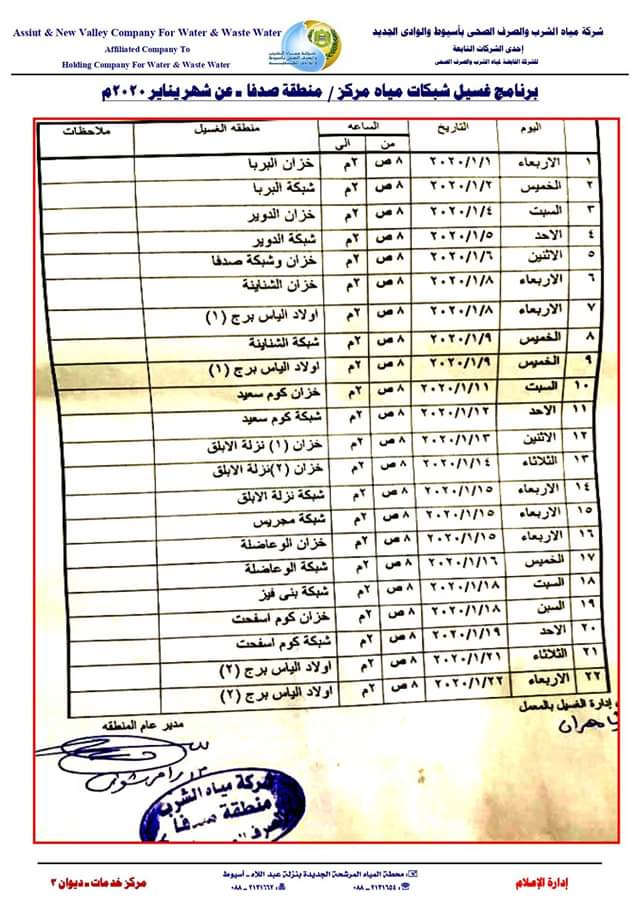 Assiut & New Valley Company For Water & Waste Water
Affiliated Company To
Holding Company For Water & Waste Water
شركة مياه الشرب والصرف الصحى بأسيوط والوادى الجديد
إحدى الشركات التابعة
للشركة القابضة لمياه الشرب والصرف الصحى
برنامج غسيل شبكات مياه مركز / منطقة صدفا - عن شهر يناير ٢٠٢٠م
اليوم التاريخ الساعه منطقه الغسيل ملاحظات
من الى
١ الاربعاء ٢٠٢٠/١/١ ٨ ص ٢م خزان البربا
٢ الخميس ٢٠٢٠/١/٢ ٨ ص ٢م شبكة البربا
٣ السبت ٢٠٢٠/١/٤ ٨ ص ٢م خزان الدوير
٤ الاحد ٢٠٢٠/١/٥ ٨ ص ٢م شبكة الدوير
٥ الاثنين ٢٠٢٠/١/٦ ٨ ص ٢م خزان وشبكة صدفا
٦ الاربعاء ٢٠٢٠/١/٨ ٨ ص ٢م خزان الشناينة
٧ الاربعاء ٢٠٢٠/١/٨ ٨ ص ٢م اولاد الياس برج (١)
٨ الخميس ٢٠٢٠/١/٩ ٨ ص ٢م شبكة الشناينة
٩ الخميس ٢٠٢٠/١/٩ ٨ ص ٢م اولاد الياس برج (١)
١٠ السبت ٢٠٢٠/١/١١ ٨ ص ٢م خزان كوم سعيد
١١ الاحد ٢٠٢٠/١/١٢ ٨ ص ٢م شبكة كوم سعيد
١٢ الاثنين ٢٠٢٠/١/١٣ ٨ ص ٢م خزان (١) نزلة الابلق
١٣ الثلاثاء ٢٠٢٠/١/١٤ ٨ ص ٢م خزان (٢)نزلة الابلق
١٤ الاربعاء ٢٠٢٠/١/١٥ ٨ ص ٢م شبكة نزلة الابلق
١٥ الاربعاء ٢٠٢٠/١/١٥ ٨ ص ٢م شبكة مجريس
١٦ الاربعاء ٢٠٢٠/١/١٥ ٨ ص ٢م خزان الوعاضلة
١٧ الخميس ٢٠٢٠/١/١٦ ٨ ص ٢م شبكة الوعاضلة
١٨ السبت ٢٠٢٠/١/١٨ ٨ ص ٢م شبكة بنى فيز
١٩ السبن ٢٠٢٠/١/١٨ ٨ ص ٢م خزان كوم اسفحت
٢٠ الاحد ٢٠٢٠/١/١٩ ٨ ص ٢م شبكة كوم اسفحت
٢١ الثلاثاء ٢٠٢٠/١/٢١ ٨ ص ٢م اولاد الياس برج (٢)
٢٢ الاربعاء ٢٠٢٠/١/٢٢ ٨ ص ٢م اولاد الياس برج (٢)
إدارة الغسيل بالمعمل
مدير عام المنطقه
شركة مياه الشرب
منطقة صدفا
إدارة الإعلام
محطة المياه المرشحة الجديدة بنزلة عبد اللاه - أسيوط
٢١٣١٦٥٤ - ٠٨٨
٢١٣١٦٦٢ - ٠٨٨
مركز خدمات - ديوان ٣